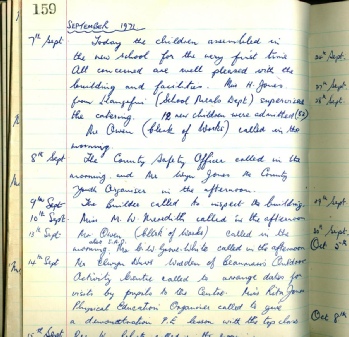 159
SEPTEMBER 1971
7th Sept. Today the children assembled in
the new school for the very first time
All concerned are well pleased with the
building and facilities. Mrs H. Jones
from Llangefni (School Meals Dept) supervised
the catering. 12 new children were admitted (52)
Mr Owen (Clerk of Works) called in the
morning.
8th Sept The County Safety Officer called in the
morning and Mr Wyn Jones the County
Youth Organiser in the afternoon.
9th Sept. The builder called to inspect the building.
10th Sept. Miss M. W. Meredith called in the afternoon
13th Sept. Mr Owen (Clerk of Works) called in the
morning. Mr G.W. called in the afternoon
14th Sept Mr Warden of Beaumaris Outdoor
Activity Centre called to arrange dates for
visits by pupils to the Centre. Miss Rita Jones
Physical Education Organiser called to give
a demonstration P.E. lesson with the top class
15th Sept
29th Sept.
Oct 5th
Oct 8th